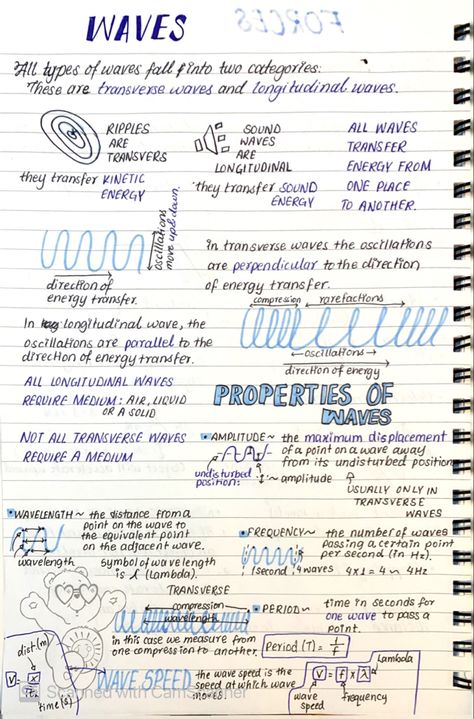 FORCES
WAVES
All types of waves fall into two categories:
These are transverse waves and longitudinal waves.
RIPPLES
ARE
TRANSVERS
they transfer KINETIC
ENERGY
SOUND
WAVES
ARE
LONGITUDINAL
they transfer SOUND
ENERGY
ALL WAVES
TRANSFER
ENERGY FROM
ONE PLACE
TO ANOTHER.
oscillations
move up & down.
direction of
energy transfer.
in transverse waves the oscillations
are perpendicular to the direction
of energy transfer.
compression rarefactions
oscillations
direction of energy
In longitudinal wave, the
oscillations are parallel to the
direction of energy transfer.
ALL LONGITUDINAL WAVES
REQUIRE MEDIUM: AIR, LIQUID
OR A SOLID
NOT ALL TRANSVERSE WAVES
REQUIRE A MEDIUM
PROPERTIES OF
WAVES
AMPLITUDE ~ the maximum displacement
of a point on a wave away
from its undisturbed position
undisturbed
position:
~ amplitude
USUALLY ONLY IN
TRANSVERSE
WAVES
WAVELENGTH ~ the distance from a
point on the wave to
the equivalent point
on the adjacent wave.
wavelength
symbol of wavelength
is λ (Lambda).
FREQUENCY ~ the number of waves
passing a certain point
per second (in Hz).
1second 4waves 4x1 = 4 ~ 4Hz
TRANSVERSE
compression
wavelength
in this case we measure from
one compression to another.
PERIOD ~ time in seconds for
one wave to pass a
point.
Period (T) = 1/f
dist.(m)
V = x/t
time(s)
WAVE SPEED the wave speed is the
speed at which wave
moves.
Lambda
V = f x λ
wave
speed
frequency
Scanned with CamScanner